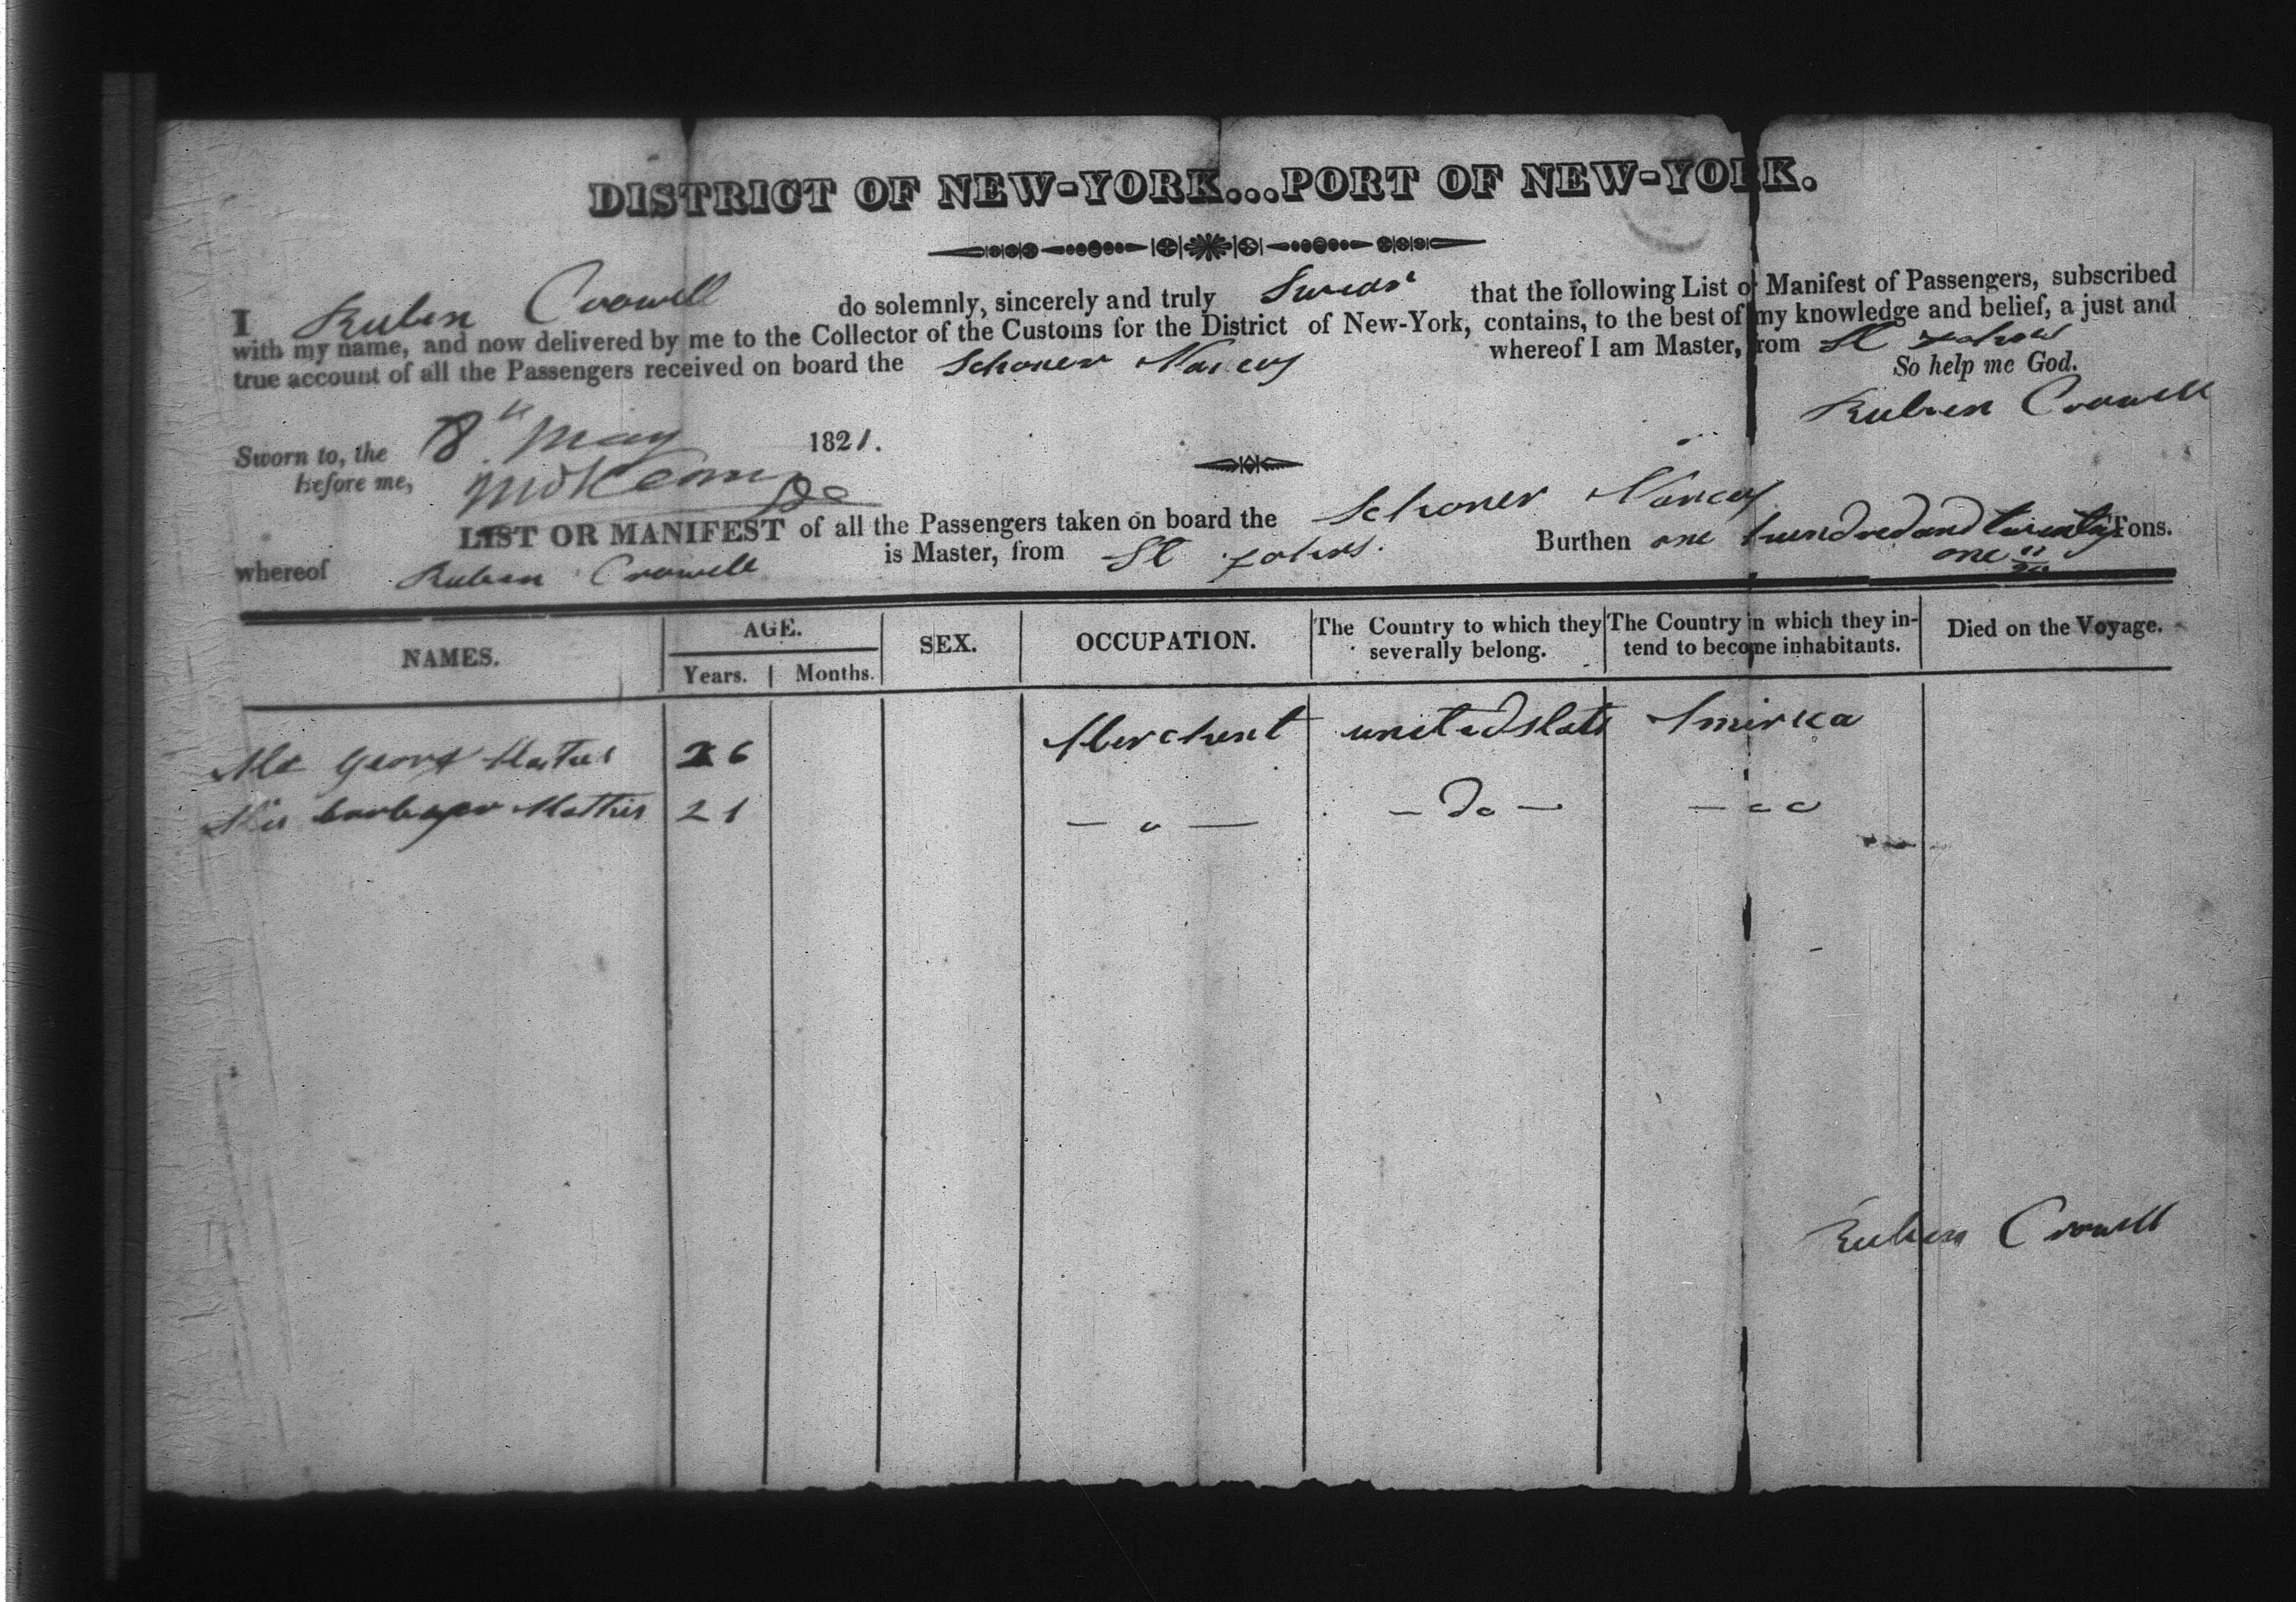 DISTRICT OF NEW-YORK...PORT OF NEW-YORK.
I Ruben Crowell do solemnly, sincerely and truly Swear that the following List or Manifest of Passengers, subscribed
with my name, and now delivered by me to the Collector of the Customs for the District of New-York, contains, to the best of my knowledge and belief, a just and
true account of all the Passengers received on board the Schoner Nancy whereof I am Master, from St
So help me God.
Ruben Crowell
Sworn to, the 8th May 1821.
before me,
LIST OR MANIFEST of all the Passengers taken on board the Schoner Nancy
whereof Ruben Crowell is Master, from St Burthen one hundred and twenty Tons.
one
NAMES. AGE. SEX. OCCUPATION. The Country to which they severally belong. The Country in which they intend to become inhabitants. Died on the Voyage.
Years. Months.
Mr Georg 26 Merchent united Stats Amirica
Mathis 21 — " — — Do —
Ruben Crowell